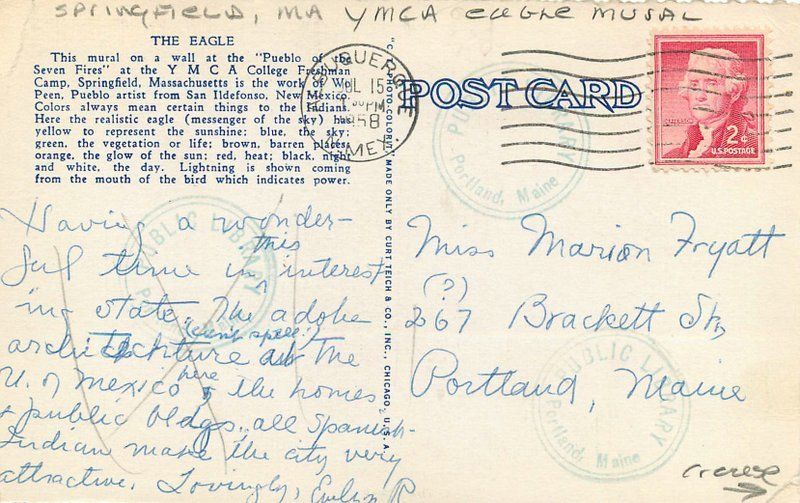 SPRINGFIELD, MA YMCA EAGLE MURAL
THE EAGLE
This mural on a wall at the "Pueblo of the
Seven Fires" at the YMCA College Freshman
Camp, Springfield, Massachusetts is the work of Wo
Peen, Pueblo artist from San Ildefonso, New Mexico.
Colors always mean certain things to the Indians.
Here the realistic eagle (messenger of the sky) has
yellow to represent the sunshine; blue, the sky;
green, the vegetation or life; brown, barren places;
orange, the glow of the sun; red, heat; black, night
and white, the day. Lightning is shown coming
from the mouth of the bird which indicates power.
Having a wonder-
this
ful time in interest
ing state. The adobe
(can't spell!)
architecture at the
here
U. of Mexico, & the homes
& public bldgs, all Spanish-
Indian make the city very
attractive. Lovingly, Evelyn R
"C.T. PHOTO-COLORIT" MADE ONLY BY CURT TEICH & CO., INC., CHICAGO, U.S.A.
ALBUQUERQUE
JUL 15
PM
1958
N. MEX.
POST CARD
JEFFERSON
2¢
U.S. POSTAGE
PUBLIC LIBRARY
Portland, Maine
Miss Marion Fryatt
(?)
267 Brackett St.,
Portland, Maine
PUBLIC LIBRARY
PUBLIC LIBRARY
Portland, Maine
crease